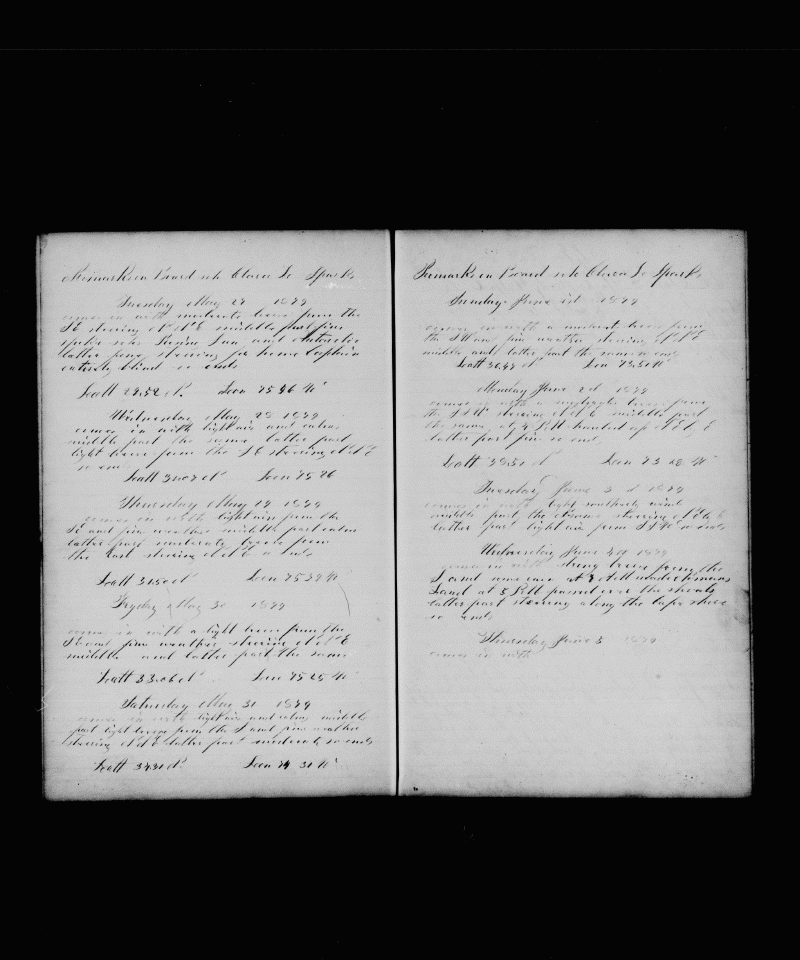 Remarks on Board sch Clarra L Sparks
Tuesday May 27 1879
comes in with moderate breeze from the
SE steering NNE middle part fine
spoke sch
latter part steering for home Captain
entirely blind so ends
Latt 29.52 N Lon 75 46 W
Wednesday May 28 1879
comes in with light air and calms
middle part the same latter part
light breeze from the SE steering NNE
so ends
Latt Lon 75 26
Thursday May 29 1879
comes in with light air from the
SE and fine weather middle part calm
latter part moderate breeze from
the East steering NNE so ends
Latt 31.50 N Lon 75 39 W
Fryday May 30 1879
comes in with a light breeze from the
SE and fine weather steering NNE
middle and latter part the same
Latt 33.06 N Lon 75 25 W
Saturday May 31 1879
comes in with light air and calms middle
part light breeze from the S and fine weather
steering NNE latter part moderate so ends
Latt 34.31 N Lon 74 31 W
Remarks on Board sch Clarra L Sparks
Sunday June 1st 1879
comes in with a moderate breeze from
the SW and fine weather steering NNE
middle and latter part the same so ends
Latt 36.47 N Lon 73.31 W
Monday June 2d 1879
comes in with a moderate breeze from
the SSW steering NNE middle part
the same, at 4 PM hauled up N E by E
latter part fine so ends
Latt 39.31 N Lon 73 08 W
Tuesday June 3 d 1879
comes in with light southerly wind
middle part the same steering
latter part light air from SSW so ends
Wednesday June 4th 1879
comes in with strong breeze from the
S and some rain at 2 PM made
Land at 5 PM passed over the shoals
latter part steering along the Cape shore
so ends
Thursday June 5 1879
comes in with